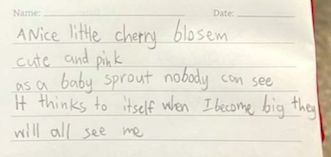 Name: Date:
A Nice little cherry blosem
cute and pink
as a baby sprout nobody can see
It thinks to itself when I become big they
will all see me